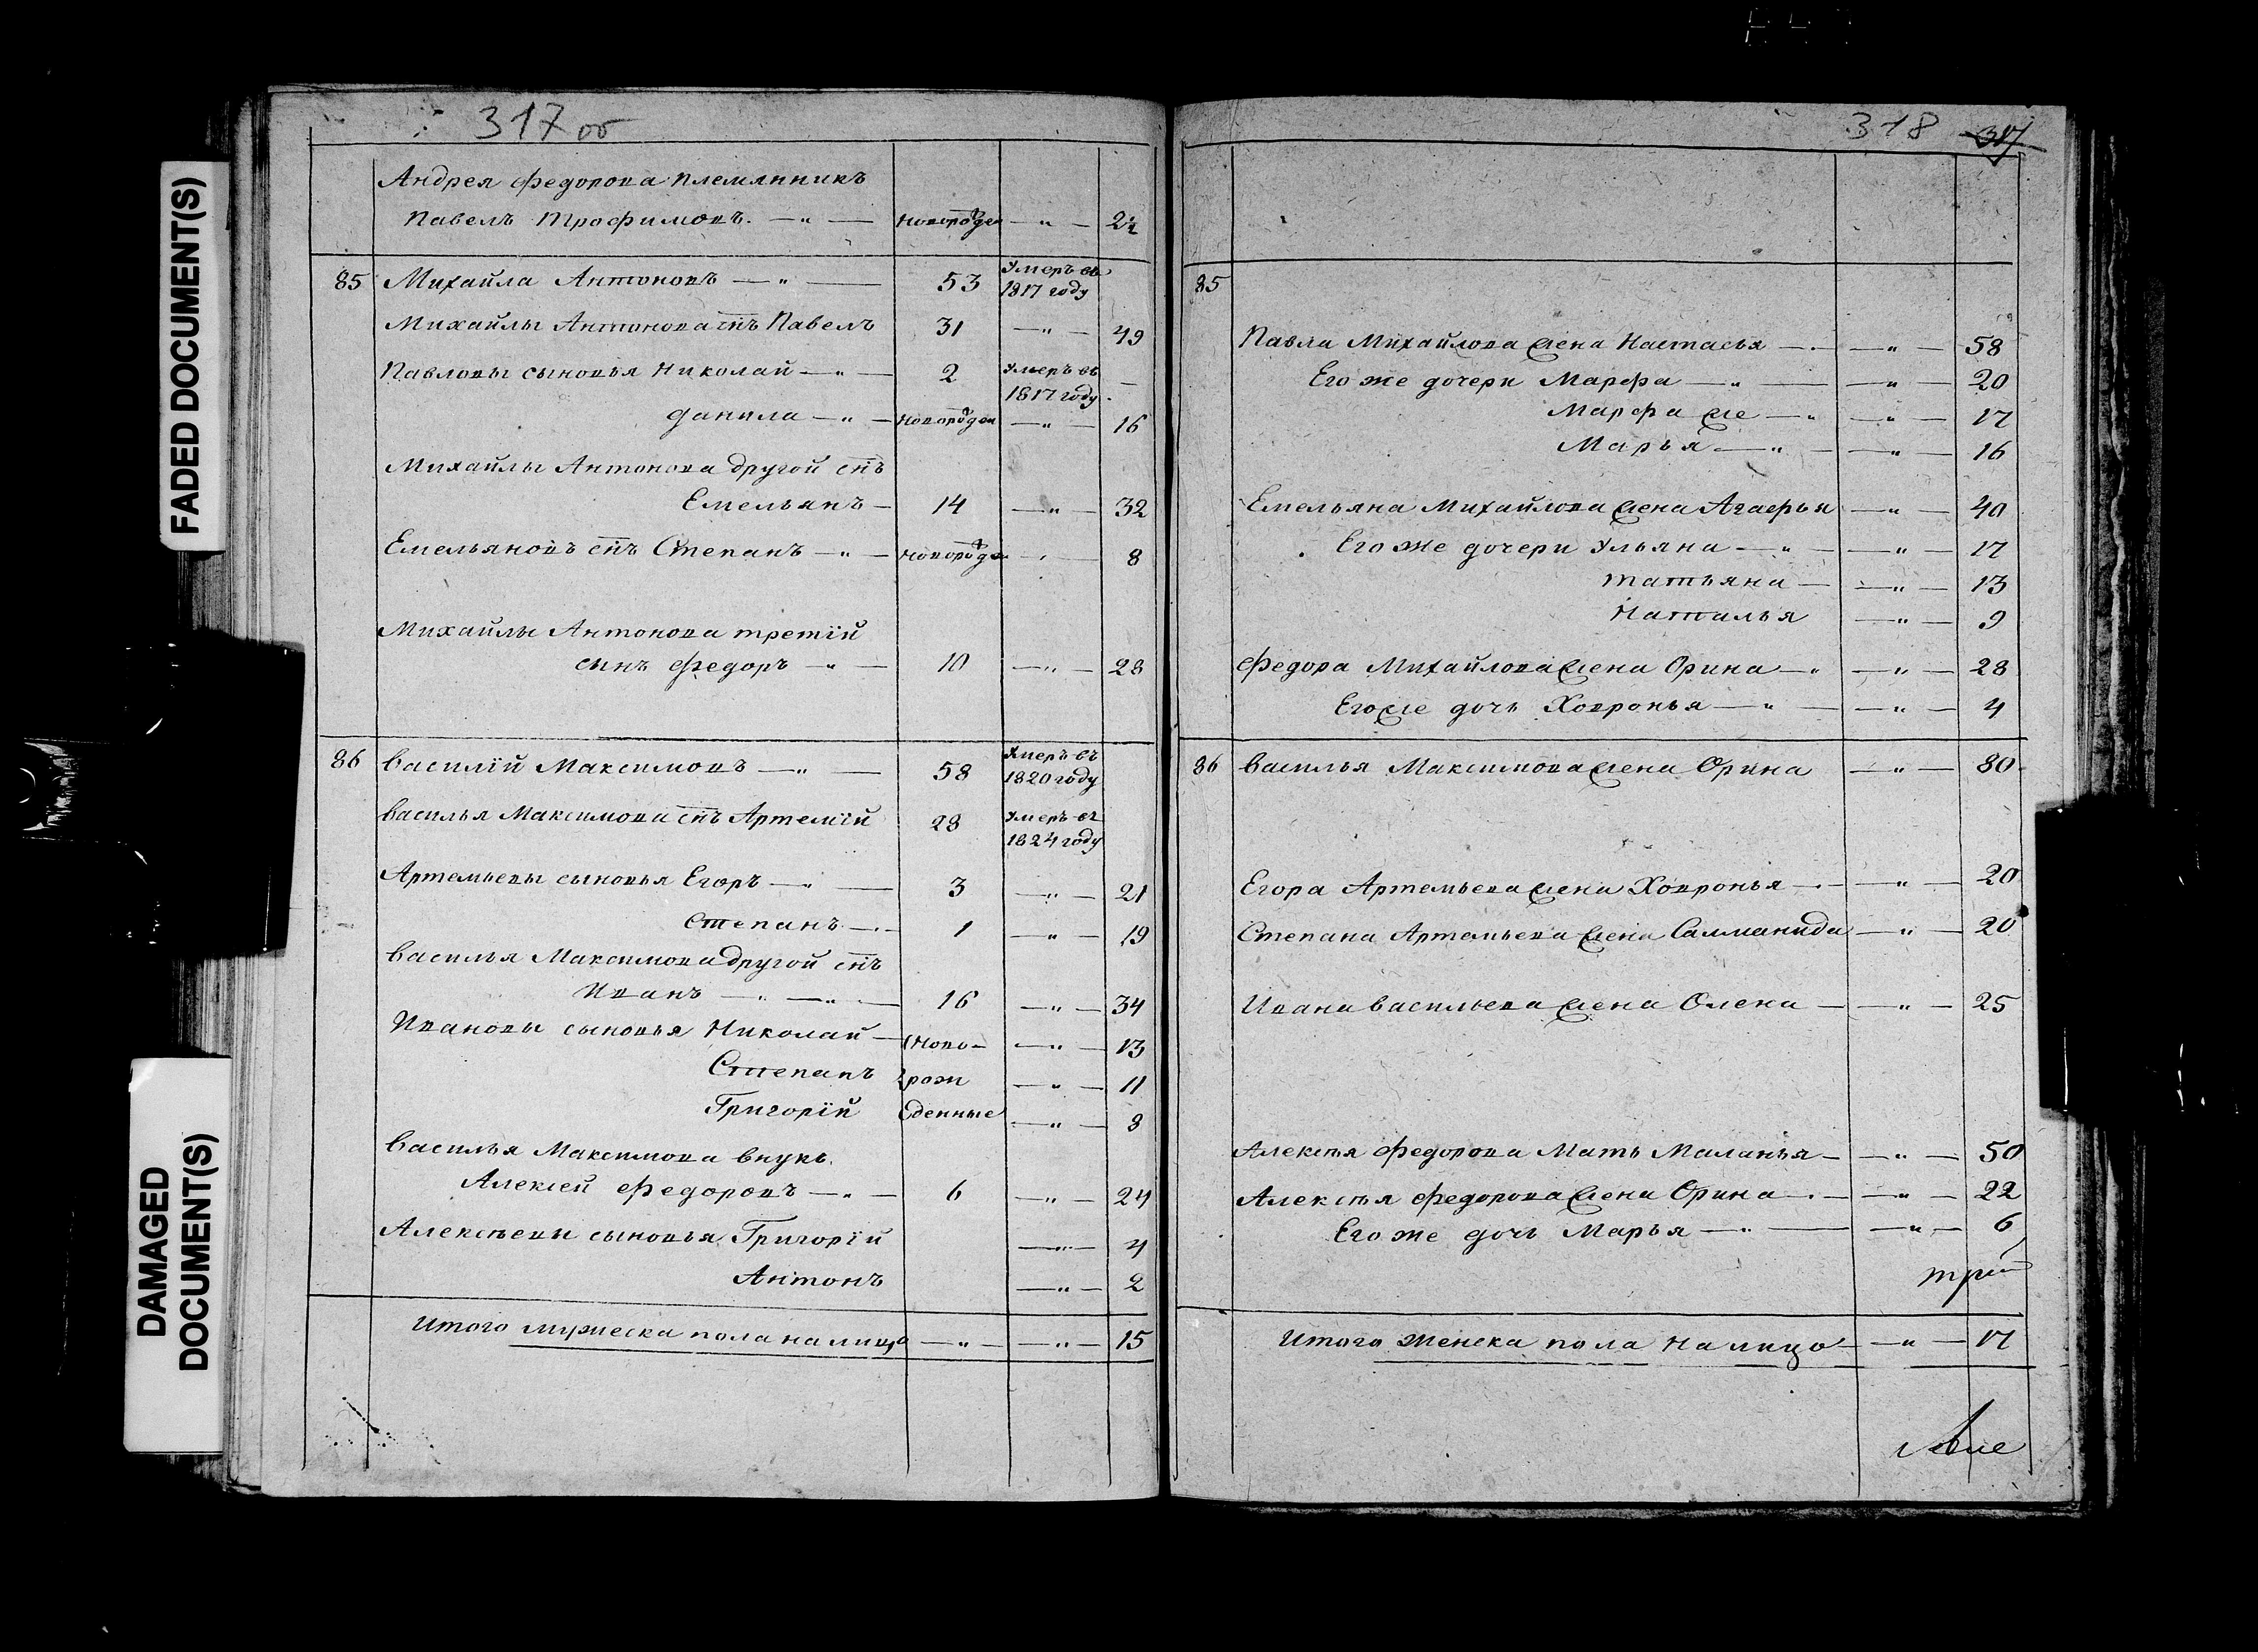 FADED DOCUMENT(S)
DAMAGED
DOCUMENT(S)
317 об
Андрея Федорова племянникъ
Павелъ Трофимовъ. — " — новорожден — " — 2½
85 Михайла Антоновъ — " — 53 Умеръ въ
1817 году
Михайлы Антонова снъ Павелъ 31 — " — 49
Павловы сыновья Николай — " — 2 Умеръ въ —
1817 году.
Данила — " — новорожден — " — 16
Михайлы Антонова другой снъ
Емельянъ — 14 — " — 32
Емельяновъ снъ Степанъ — " — новорожден — " — 8
Михайлы Антонова третій
сынъ Федоръ — " — 10 — " — 28
86 Василій Максимовъ — " — 58 Умеръ въ
1820 году
Василья Максимова снъ Артемій 28 Умеръ въ
1824 году
Артемьевы сыновья Егоръ — " — 3 — " — 21
Степанъ — " — 1 — " — 19
Василья Максимова другой снъ
Иванъ — " — " — 16 — " — 34
Ивановы сыновья Николай — ново- — " — 13
Степанъ рож — " — 11
Григорій денные — " — 8
Василья Максимова внукъ.
Алексей Федоровъ — " — 6 — " — 24
Алексѣевы сыновья Григорій — " — 4
Антонъ — " — 2
Итого мужеска пола на лицо — " — " — 15
318 317
85
Павла Михайлова жена Настасья — " — " — 58
Его же дочери Марфа — " — " — 20
Марфа же — " — " — 17
Марья — " — " — 16
Емельяна Михайлова жена Агафья — " — 40
Его же дочери Ульяна — " — " — 17
Татьяна — " — 13
Наталья — " — 9
Федора Михайлова жена Орина — " — " — 28
Егоже дочь Ховронья — " — " — 4
86 Василья Максимова жена Орина — " — 80
Егора Артемьева жена Ховронья — " — " — 20
Степана Артемьева жена Салманида — " — 20
Ивана Васильева жена Олена — " — 25
Алексѣя Федорова Мать Маланья — " — 50
Алексѣя Федорова жена Орина — " — " — 22
Его же дочь Марья — " — " — 6
Итого женска пола на лицо — " — 17